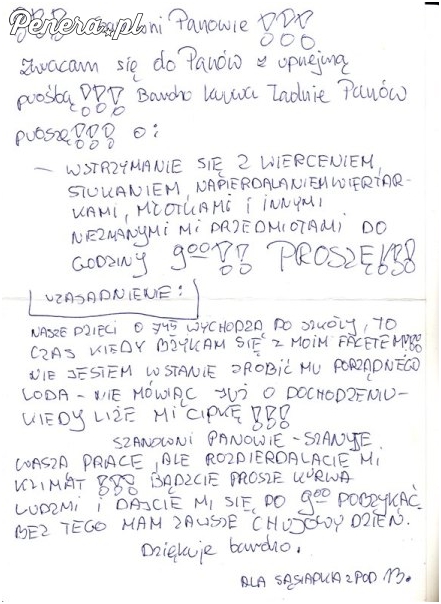 Penera.pl
Panowie !!!
Zwracam się do Panów z uprzejmą
prośbą !!! Bardzo kurwa ładnie Panów
proszę!!! o:
- WSTRZYMANIE SIĘ Z WIERCENIEM,
STUKANIEM, NAPIERDALANIEM WIERTAR-
KAMI, MŁOTKAMI I INNYMI
NIEZNANYMI MI PRZEDMIOTAMI DO
GODZINY 9⁰⁰!! PROSZĘ!!!
UZASADNIENIE:
NASZE DZIECI O 7⁴⁵ WYCHODZĄ DO SZKOŁY, TO
CZAS KIEDY BZYKAM SIĘ Z MOIM FACETEM!!!
NIE JESTEM W STANIE ZROBIĆ MU PORZĄDNEGO
LODA - NIE MÓWIĄC JUŻ O DOCHODZENIU -
KIEDY LIŻE MI CIPKĘ !!!
SZANOWNI PANOWIE - SZANUJĘ
WASZĄ PRACĘ, ALE ROZPIERDALACIE MI
KLIMAT !!! BĄDZCIE PROSZĘ KURWA
LUDZMI I DAJCIE MI SIĘ DO 9⁰⁰ POBZYKAĆ.
BEZ TEGO MAM ZAWSZE CHUJOWY DZIEŃ.
Dziękuję bardzo.
SĄSIADKA z POD 13.